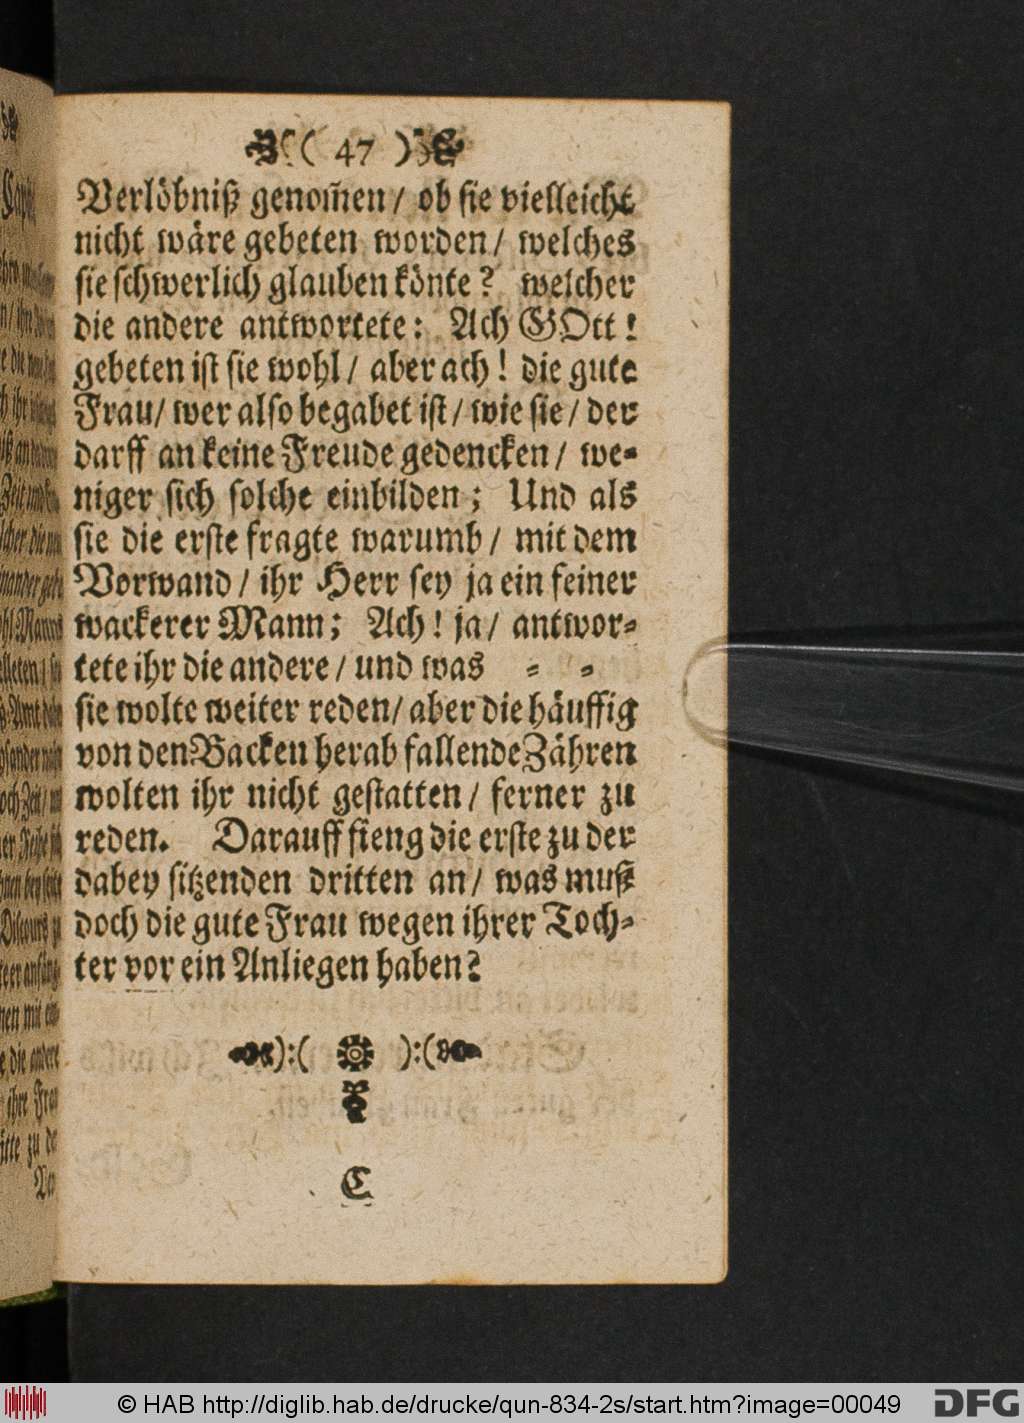 ( 47 )
Verlöbniß genom̃en / ob sie vielleicht
nicht wäre gebeten worden / welches
sie schwerlich glauben könte? welcher
die andere antwortete: Ach GOtt!
gebeten ist sie wohl / aber ach! die gute
Frau / wer also begabet ist / wie sie / der
darff an keine Freude gedencken / we-
niger sich solche einbilden; Und als
sie die erste fragte warumb / mit dem
Vorwand / ihr Herr sey ja ein feiner
wackerer Mann; Ach! ja / antwor-
tete ihr die andere / und was - -
sie wolte weiter reden / aber die häuffig
von den Backen herab fallende Zähren
wolten ihr nicht gestatten / ferner zu
reden. Darauff fieng die erste zu der
dabey sitzenden dritten an / was muß
doch die gute Frau wegen ihrer Toch-
ter vor ein Anliegen haben?
):( ):(
C
© HAB http://diglib.hab.de/drucke/qun-834-2s/start.htm?image=00049
DFG